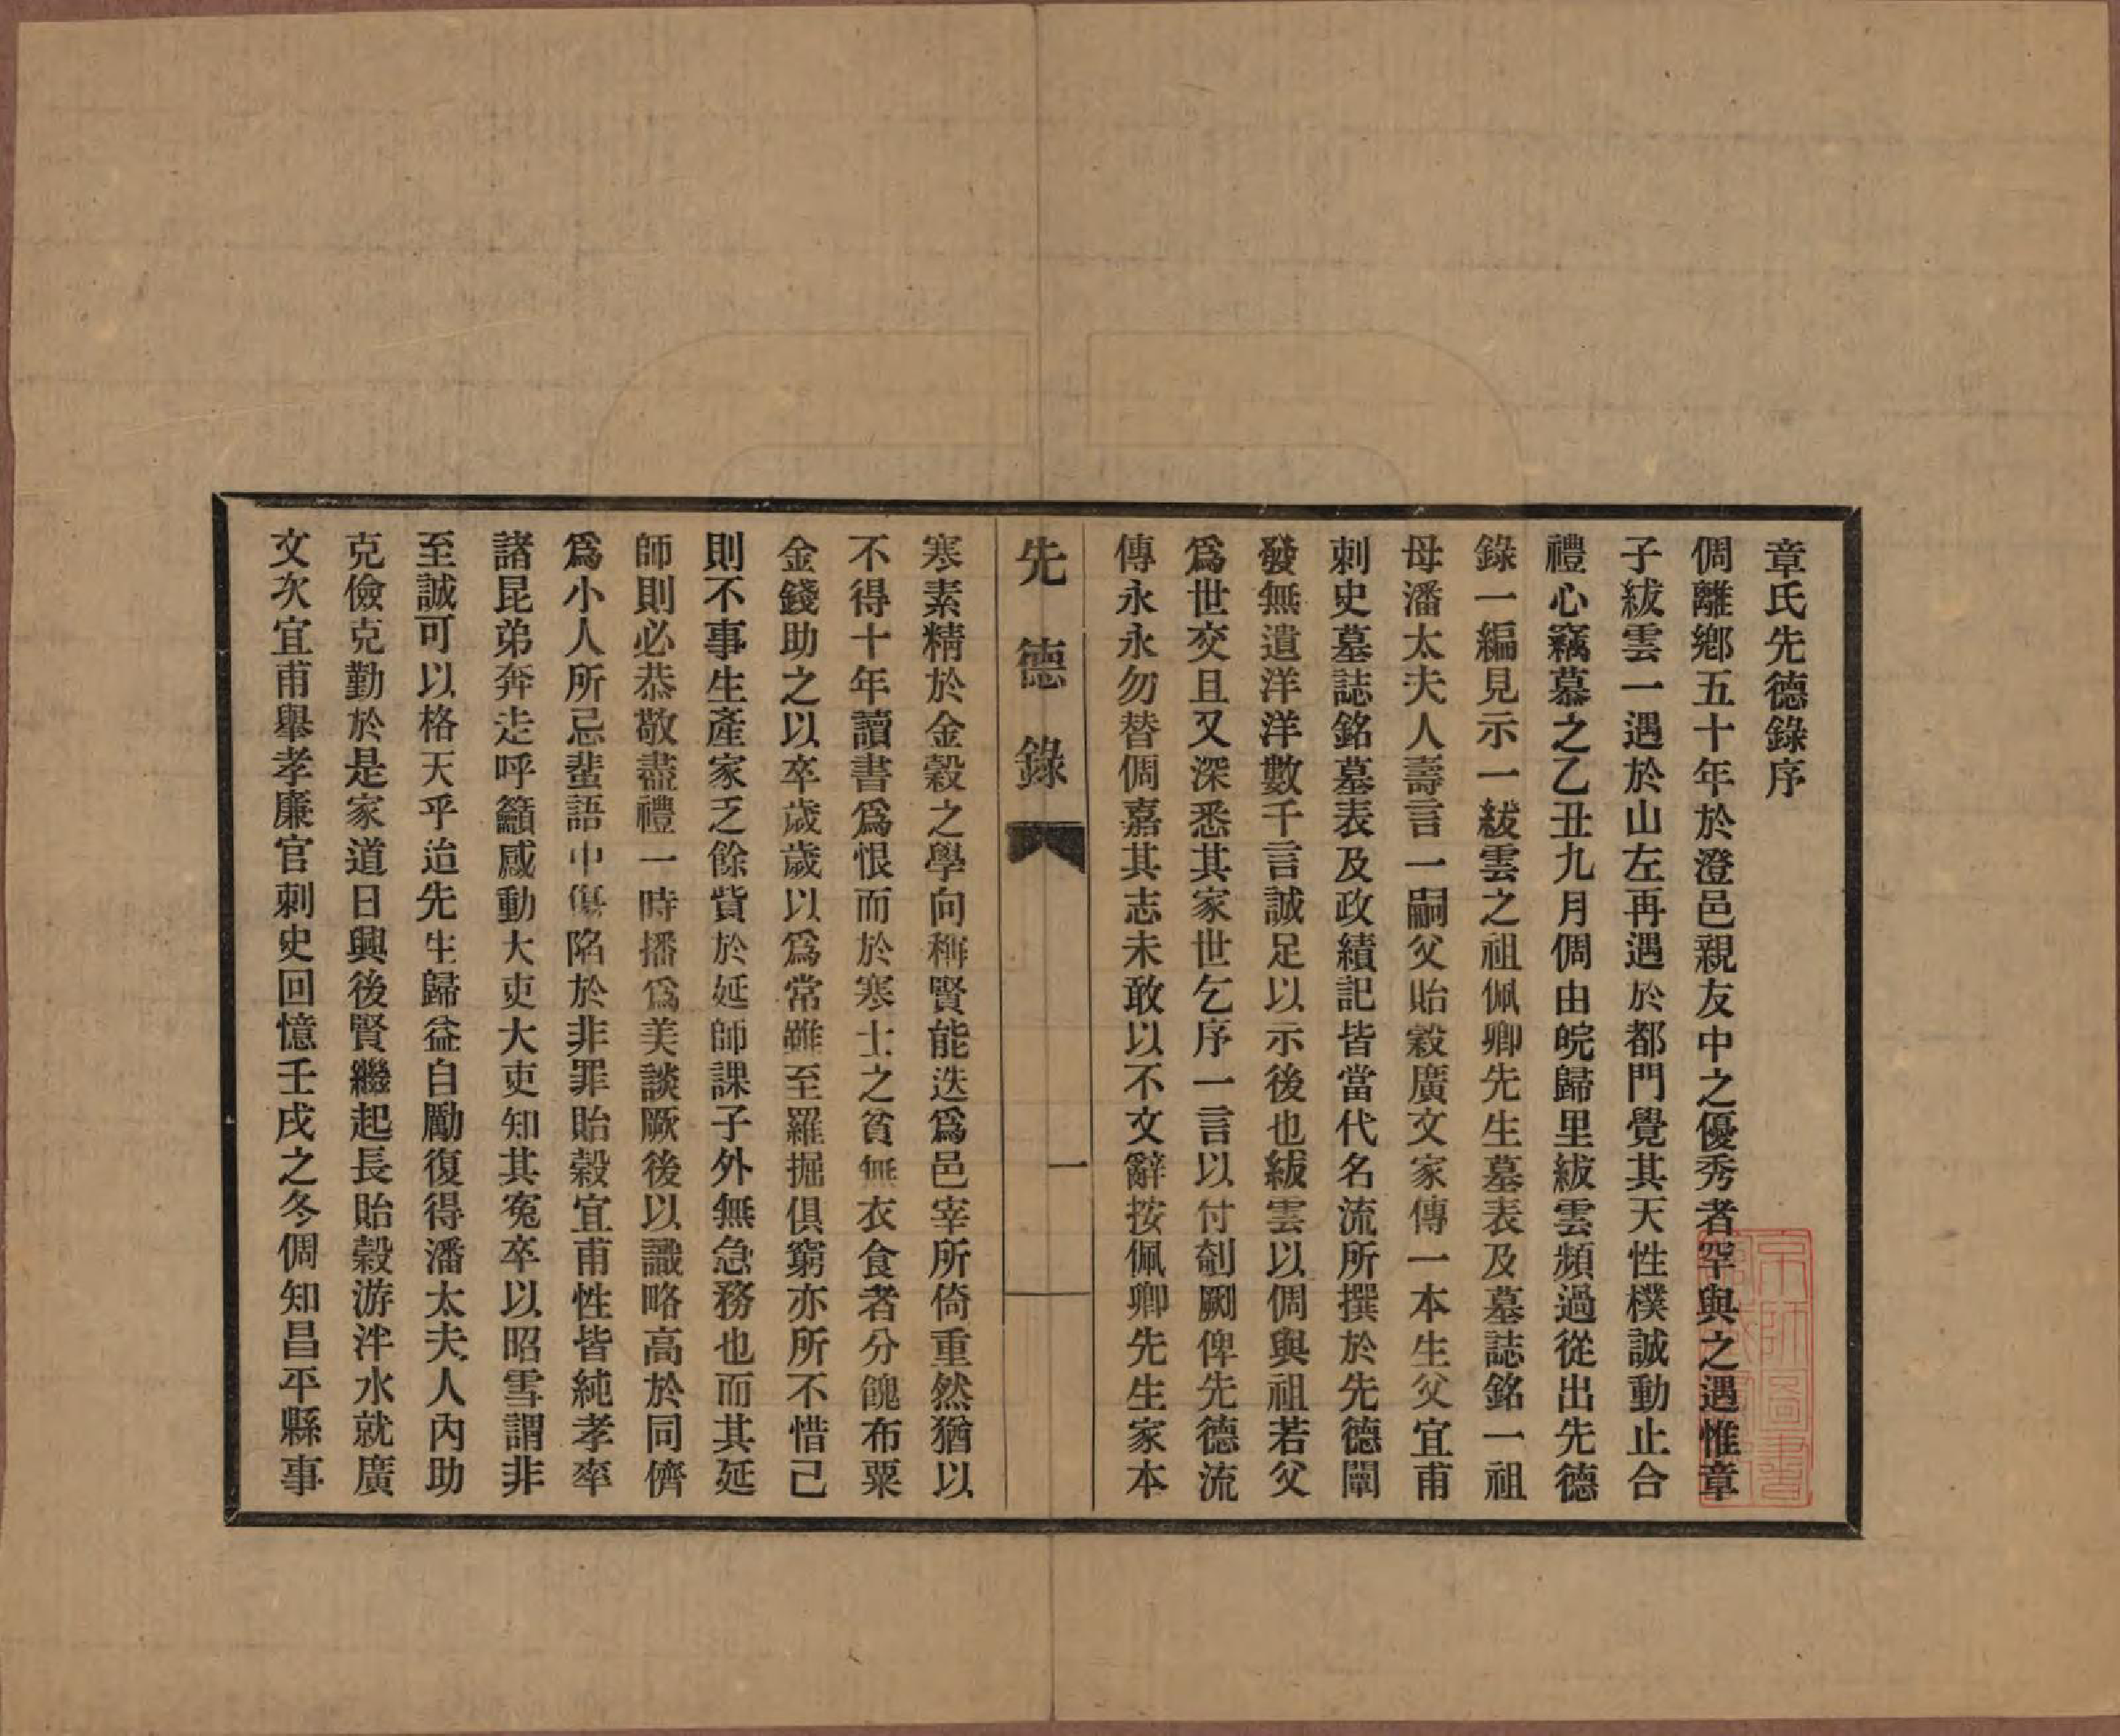 章氏先德錄序
倜離鄉五十年於澄邑親友中之優秀者罕與之遇惟章
子紱雲一遇於山左再遇於都門覺其天性樸誠動止合
禮心竊慕之乙丑九月倜由皖歸里紱雲頻過從出先德
錄一編見示一紱雲之祖佩卿先生墓表及墓誌銘一祖
母潘太夫人壽言一嗣父貽穀廣文家傳一本生父宜甫
刺史墓誌銘墓表及政績記皆當代名流所撰於先德闡
發無遺洋洋數千言誠足以示後也紱雲以倜與祖若父
爲世交且又深悉其家世乞序一言以付剞劂俾先德流
傳永永勿替倜嘉其志未敢以不文辭按佩卿先生家本
先德錄
一
寒素精於金穀之學向稱賢能迭爲邑宰所倚重然猶以
不得十年讀書爲恨而於寒士之貧無衣食者分餽布粟
金錢助之以卒歲歲以爲常雖至羅掘俱窮亦所不惜己
則不事生產家乏餘貲於延師課子外無急務也而其延
師則必恭敬盡禮一時播爲美談厥後以識略高於同儕
爲小人所忌蜚語中傷陷於非罪貽穀宜甫性皆純孝率
諸昆弟奔走呼籲感動大吏大吏知其冤卒以昭雪謂非
至誠可以格天乎迨先生歸益自勵復得潘太夫人內助
克儉克勤於是家道日興後賢繼起長貽穀游泮水就廣
文次宜甫舉孝廉官刺史回憶壬戌之冬倜知昌平縣事
京師圖書